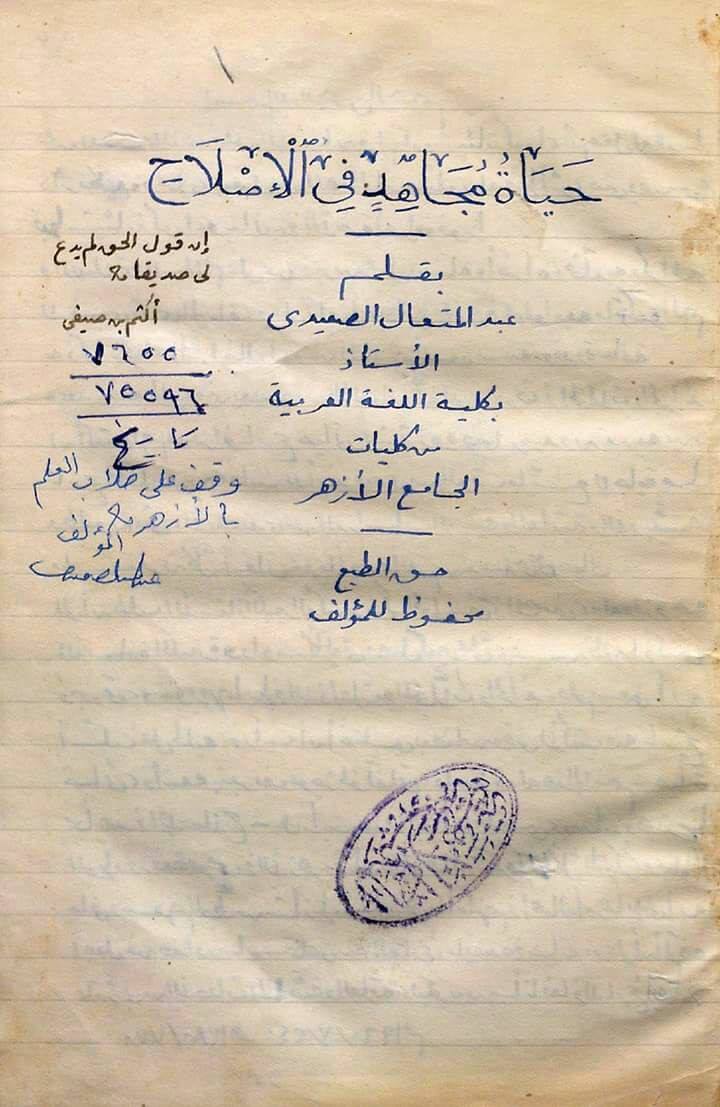 حَيَاةُ مُجَاهِدٍ فِي الْإِصْلَاحِ
بقلم
عبد المتعال الصعيدى
الأستاذ
بكلية اللغة العربية
من كليات
الجامع الأزهر
حق الطبع
محفوظ للمؤلف
إن قول الحق لم يدع
لى صديقا
أكثم بن صيفى
٧٦٥٥
٧٥٥٩٦
تاريخ
وقف على طلاب العلم
بالأزهر
المؤلف